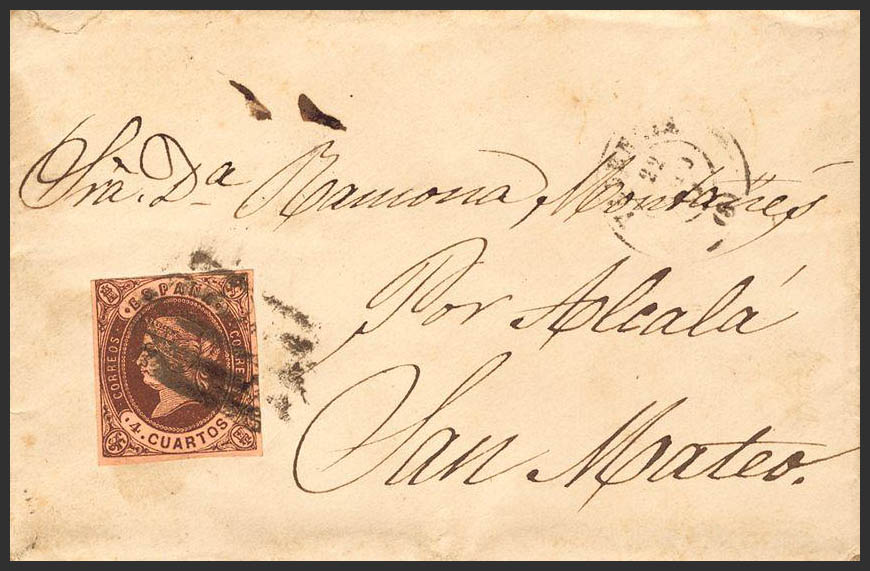 Sra. Da. Ramona Montañés
Por Alcalá
San Mateo.
ESPAÑA
CORREOS CORREOS
.4. CUARTOS
22